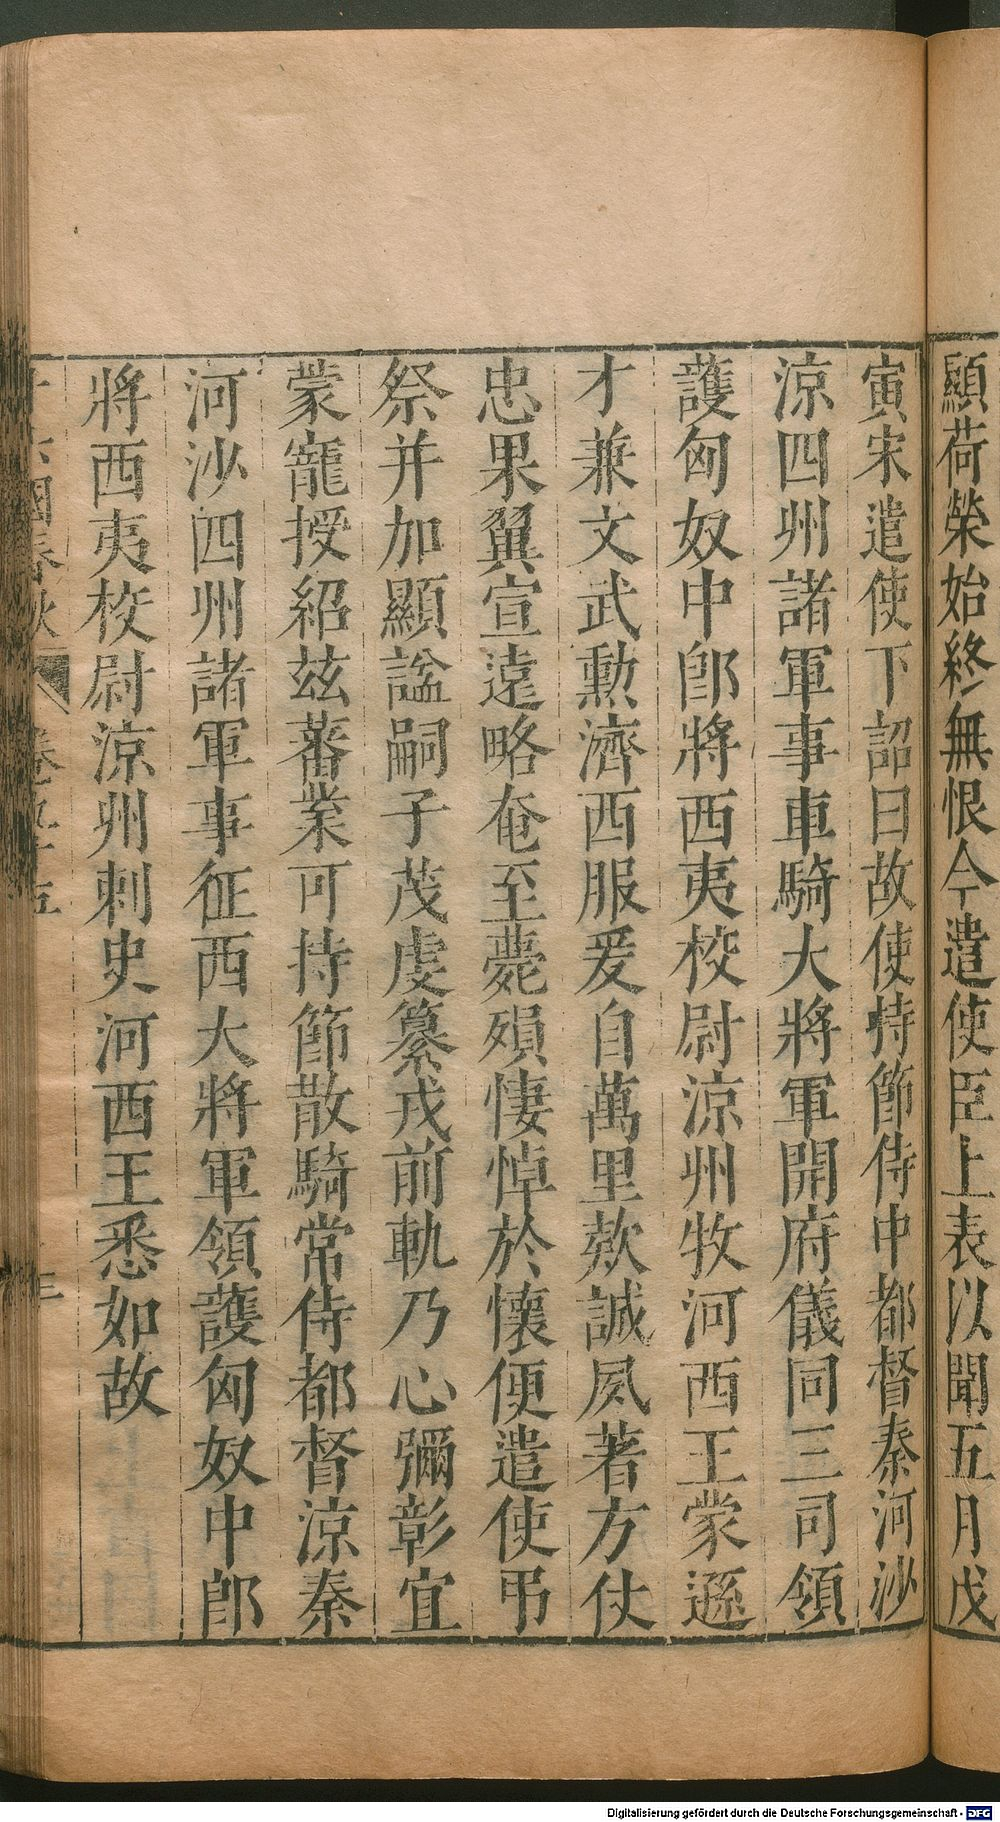 顯荷榮始終無恨今遣使臣上表以聞五月戊
寅宋遣使下詔曰故使持節侍中都督秦河沙
涼四州諸軍事車騎大將軍開府儀同三司領
護匈奴中郎將西夷校尉涼州牧河西王蒙遜
才兼文武勲濟西服爰自萬里款誠夙著方仗
忠果翼宣遠略奄至薨殞悽悼於懷便遣使弔
祭并加顯諡嗣子茂虔纂戎前軌乃心彌彰宜
蒙寵授紹兹蕃業可持節散騎常侍都督涼秦
河沙四州諸軍事征西大將軍領護匈奴中郎
將西夷校尉涼州刺史河西王悉如故
十六國春秋 卷九十五 三
Digitalisierung gefördert durch die Deutsche Forschungsgemeinschaft - DFG